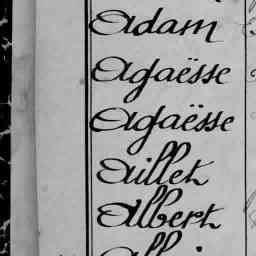 Adam
Agaësse
Agaësse
Aillet
Albert